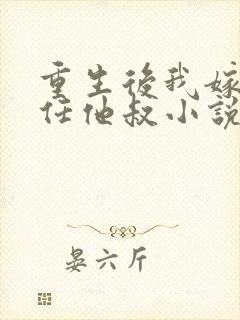 重生後我嫁
任他叔小說
晏六斤